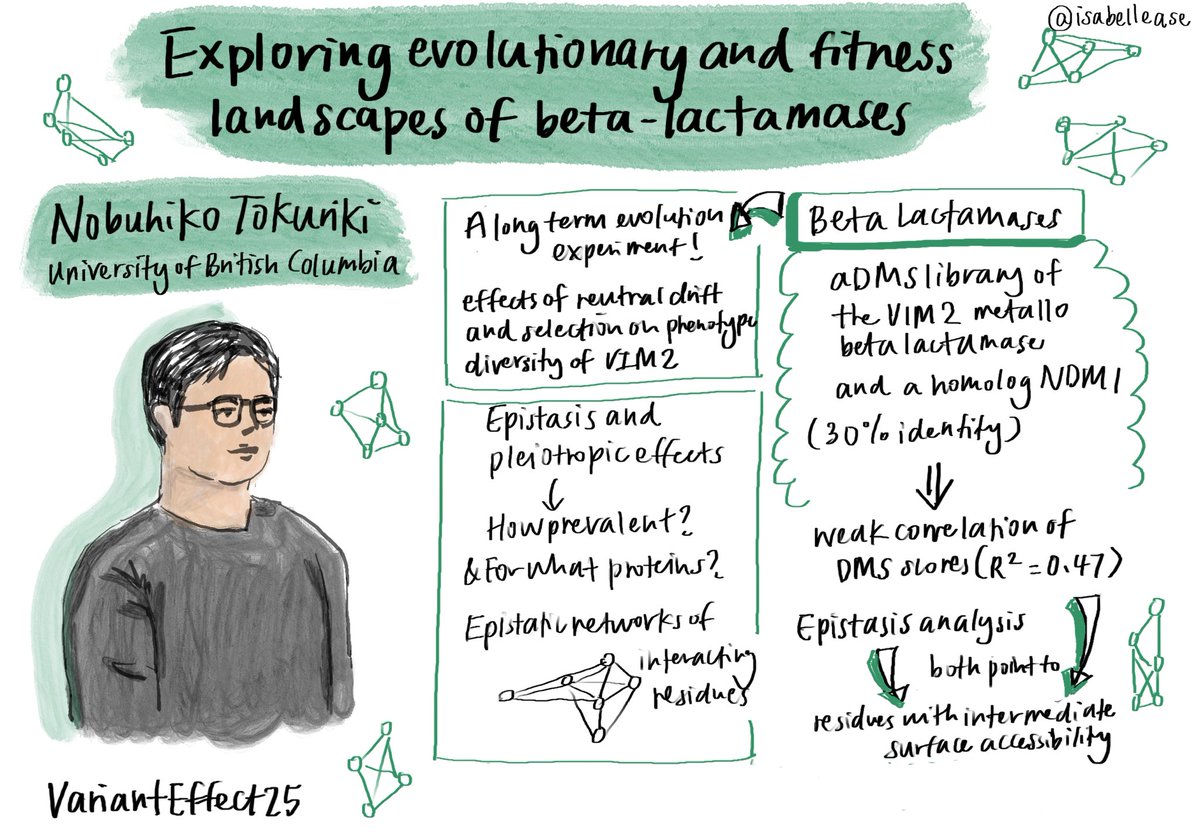 @isabellease
Exploring evolutionary and fitness
landscapes of beta-lactamases
Nobuhiko Tokuriki
University of British Columbia
A long term evolution
experiment!
effects of neutral drift
and selection on phenotypic
diversity of VIM2
Epistasis and
pleiotropic effects
How prevalent?
& For what proteins?
Epistatic networks of
interacting
residues
Beta Lactamases
a DMS library of
the VIM2 metallo
beta lactamase
and a homolog NDM1
(30% identity)
weak correlation of
DMS scores (R² = 0.47)
Epistasis analysis
both point to
residues with intermediate
surface accessibility
VariantEffect25